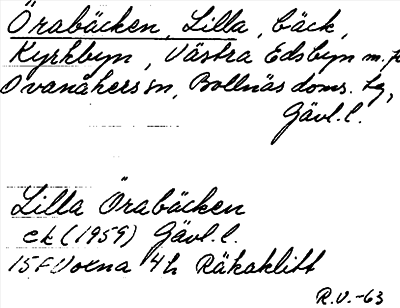 Örabäcken, Lilla, bäck,
Kyrkbyn, Västra Edsbyn m. fl
Ovanåkers sn, Bollnäs doms. tg,
Gävl. l.
Lilla Örabäcken
ek (1959) Gävl. l.
15F Voxna 4h Räkaklitt
R.V.-63